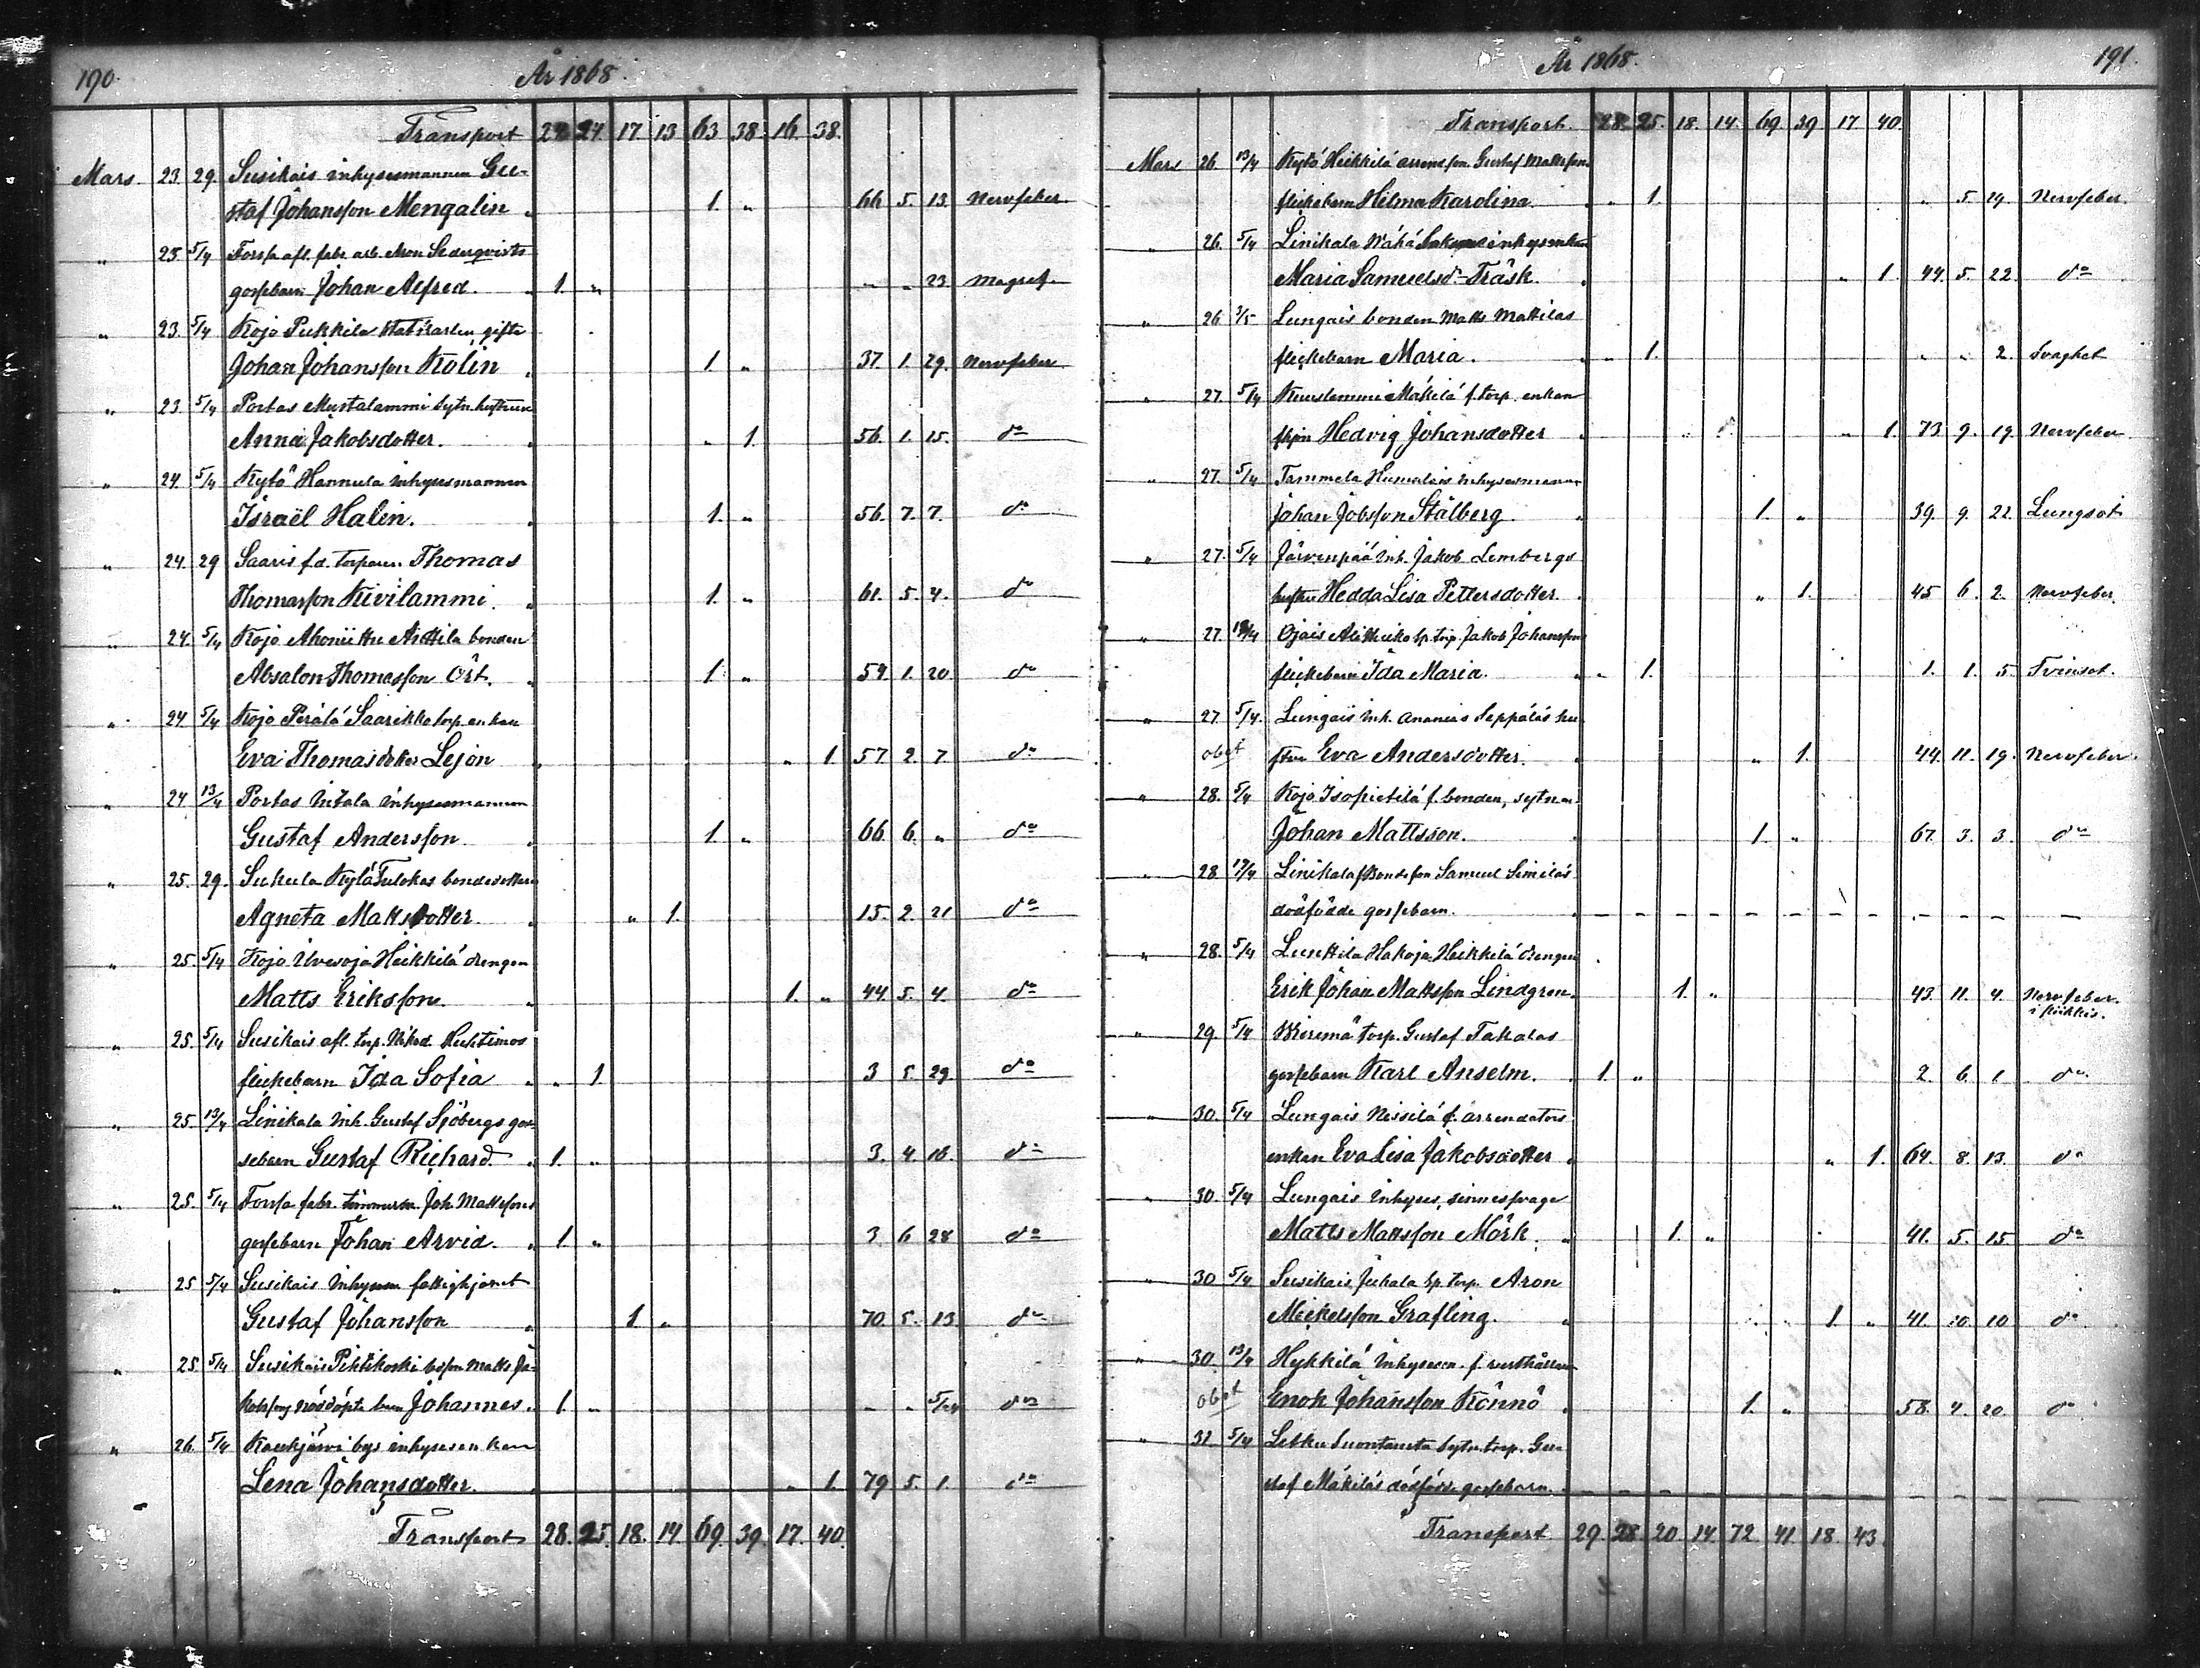 190. År 1868.
Transport 24 24. 17 13 63 38. 16. 38.
Mars. 23. 29. Susikais inhysesmannen Gu-
staf Johansson Mengalin „ 1. „ 66 5. 13. Nervfeber
„ 25 5/4 Forssa afl. fabr. arb. Sederqvists
gossebarn Johan Alfred. „ 1. „ „ „ 23 Magref.
„ 23. 5/4 Kojo Pukkila gifte
Johan Johansson Kolin „ 1. „ 37. 1. 29. Nervfeber
„ 23. 5/4 Portas Mustalammi sytn. hustrun
Anna Jakobsdotter. „ 1. 56. 1. 15. do
„ 24. 5/4 Kytö Hannula inhysesmannen
Israël Halin. 1. „ 56. 7. 7. do
„ 24. 29 Saaris f.d. torparen Thomas
Thomasson Kivilammi. „ 1. „ 61. 5. 4. do
„ 24. 5/4 Kojo Anttila bonden
Absalon Thomasson Ört. „ 1. „ 59 1. 20 do
„ 24 5/4 Kojo Perälä Saarikko torp. enkan
Eva Thomasdotter Lejon „ 1 57 2. 7 do
„ 24 13/4 Portas inhysesmannen
Gustaf Andersson 1. „ 66 6. „ do
„ 25. 29. Sukula Kylä Tulokas bondedottern
Agneta Mattsdotter „ 1. 15. 2. 21 do
„ 25. 5/4 Kojo Uvesoja Heikkilä drengen
Matts Eriksson. 1. „ 44 5. 4. do
„ 25. 5/4 Susikais afl. torp. Nikod. Huhtimos
flickebarn Ida Sofia „ 1 3 5. 29. do
„ 25. 13/4 Linikala inh. Gustaf Sjöbergs gos-
sebarn Gustaf Richard „ 1. „ 3. 4. 16. do
„ 25. 5/4 Forssa fabr. timmerm. Joh. Mattssons
gossebarn Johan Arvid. „ 1. „ 3. 6 28 do
„ 25 5/4 Susikais inhysesm. fattighjonet
Gustaf Johansson 1. „ 70. 5. 13. do
„ 25. 5/4 Susikais Pihtikoski Matts Ja-
kobssons nöddöpte barn Johannes. „ 1. „ „ „ 5/24 do
„ 26. 5/4 Kaukjärvi bys inhysesenkan
Lena Johansdotter. „ 1. 79 5. 1. do
Transport 28. 25. 18. 14. 69. 39. 17. 40.
År 1868. 191.
Transport. 28. 25. 18. 14. 69 39 17 40
Mars 26 13/4 Kytö Heikkilä Gustaf Mattssons
flickebarn Hilma Karolina. „ 1. „ 5. 19 Nervfeber.
„ 26. 5/4 Linikala
Maria Samuelsd:r Träsk. „ 1. 44. 5. 22. do
„ 26 3/5 Lungais bonden Matts Mattilas
flickebarn Maria. „ 1. „ „ 2. Svaghet
„ 27. 5/4 Kuuslammi Mäkilä f. torp. enkan
Hedvig Johansdotter „ 1. 73 9. 19. Nervfeber
„ 27. 5/4 Tammela inhysesmannen
Johan Jobsson Stålberg 1. „ 39. 9. 22. Lungsot
„ 27. 5/4 Järvenpää inh. Jakob Lembergs
hustru Hedda Lisa Pettersdotter. „ 1. 45 6. 2. Nervfeber.
„ 27. Ojais torp. Jakob Johanssons
flickebarn Ida Maria. „ 1. 1. 1. 5. Tvinsot.
„ 27 5/4. Lungais inh. Ananias Seppäläs hu-
obgt strun Eva Andersdotter. „ 1. 44. 11. 19. Nervfeber.
„ 28. 5/4 Kojo Isopietilä f. bonden, sytn.
Johan Mattsson. 1. „ 67. 3. 3. do
„ 28 Linikala bondeson Samuel Similäs
dödfödde gossebarn. – – – – – – – – – – – –
„ 28. 5/4 Lunttila Hakoja Heikkilä drengen
Erik Johan Mattsson Lindgren. 1. „ 43. 11. 4. Nervfeber
„ 29. 5/4 torp. Gustaf Takalas
gossebarn Karl Anselm. 1. „ 2. 6. 1 do
„ 30. 5/4 Lungais Nissilä f. arrendators
enkan Eva Lisa Jakobsdotter „ 1. 64. 8. 13. do
„ 30. 5/4 Lungais inhyses, sinnessvage
Matts Mattsson Mörk. 1. „ 41. 5. 15. do
„ 30 5/4 Susikais torp. Aron
Mickelsson Grafling. 1. „ 41. 10. 10 do
„ 30. 13/4 Hykkilä inhysesm. f. rusthållaren
obgt Enok Johansson Könnö 1. „ 58. 4. 20. do
„ 31. 5/4 Letku Suontausta sytn. torp. Gu-
staf Mäkiläs dödfödde gossebarn. – – – – – – – – – – – –
Transport 29. 28. 20 14. 72. 41. 18. 43.